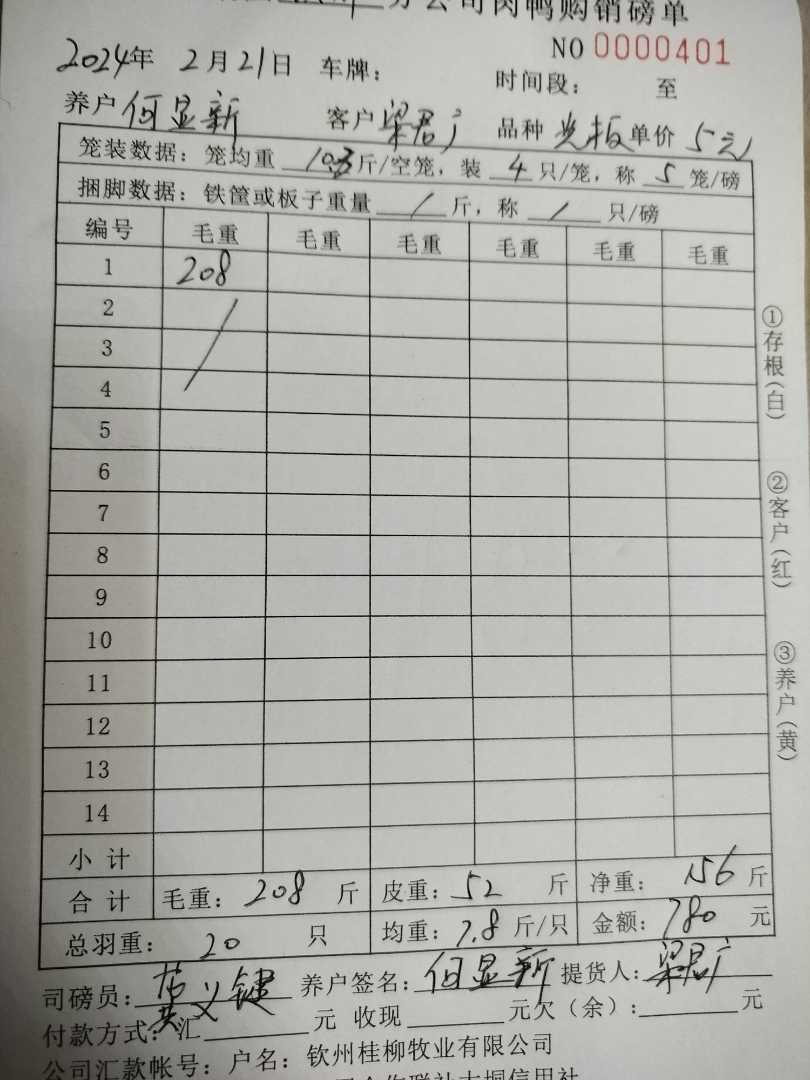 分公司肉鸭购销磅单
NO 0000401
2024年 2月21日 车牌： 时间段： 至
养户 何显新 客户 梁君广 品种 光板 单价 5元
笼装数据：笼均重 10.3斤/空笼，装 4 只/笼，称 5 笼/磅
捆脚数据：铁筐或板子重量 / 斤，称 / 只/磅
编号 毛重 毛重 毛重 毛重 毛重 毛重
1 208
2
3
4
5
6
7
8
9
10
11
12
13
14
小计
合计 毛重：208 斤 皮重：52 斤 净重：156 斤
总羽重：20 只 均重：7.8 斤/只 金额：780 元
司磅员：黄义键 养户签名：何显新 提货人：梁君广
付款方式：汇 元 收现 元欠（余）： 元
公司汇款帐号：户名：钦州桂柳牧业有限公司
合作联社大垌信用社
①存根（白）
②客户（红）
③养户（黄）